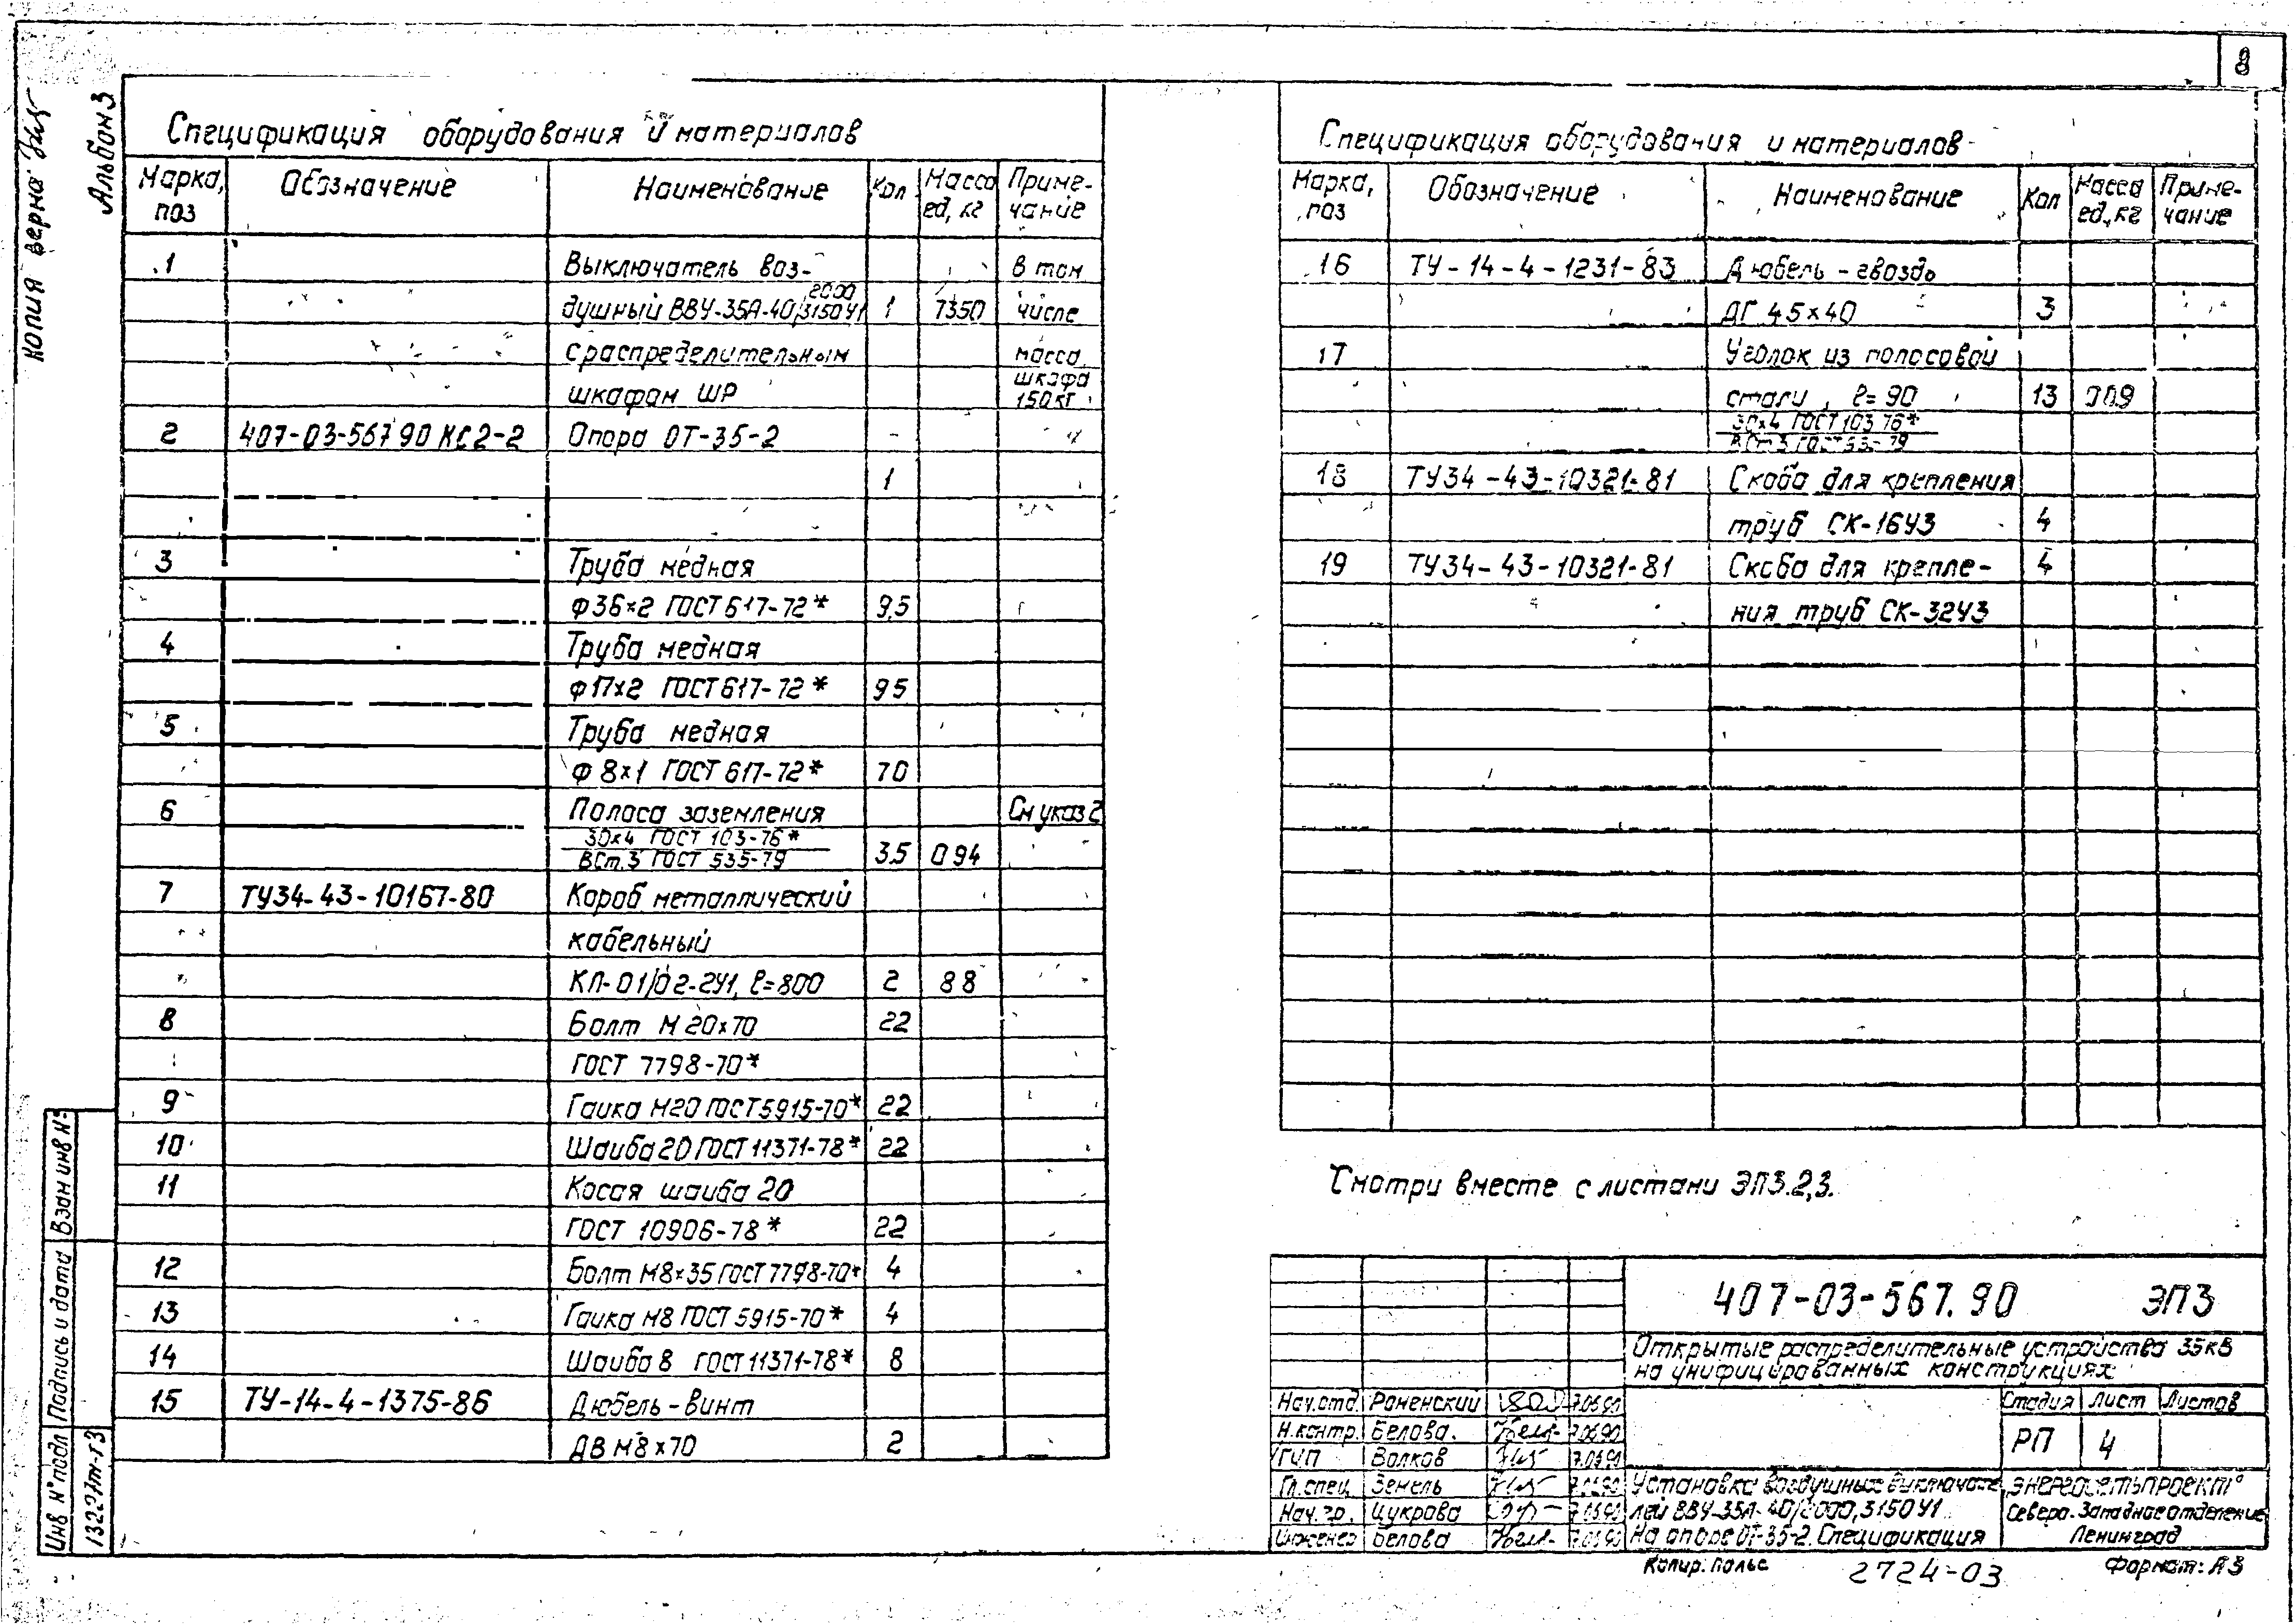 8
Копия верна
Альбом 3
Спецификация оборудования и материалов
Марка, поз Обозначение Наименование Кол Масса ед, кг Приме-чание
1 Выключатель воз- в том
душный ВВУ-35А-40/2000/3150 У1 1 7350 числе
с распределительным масса
шкафом ШР шкафа 150 кг
2 407-03-567 90 КС2-2 Опора ОТ-35-2
1
3 Труба медная
ф36×2 ГОСТ 617-72* 9,5
4 Труба медная
ф17×2 ГОСТ 617-72* 9 5
5 Труба медная
ф 8×1 ГОСТ 617-72* 70
6 Полоса заземления См указ 2
30×4 ГОСТ 103-76*
ВСт.3 ГОСТ 535-79 3.5 0 94
7 ТУ34-43-10167-80 Короб металлический
кабельный
КЛ-01/02-2У1, ℓ=800 2 8 8
8 Болт М 20×70 22
ГОСТ 7798-70*
9 Гайка М20 ГОСТ 5915-70* 22
10 Шайба 20 ГОСТ 11371-78* 22
11 Косая шайба 20
ГОСТ 10906-78* 22
12 Болт М8×35 ГОСТ 7798-70* 4
13 Гайка М8 ГОСТ 5915-70* 4
14 Шайба 8 ГОСТ 11371-78* 8
15 ТУ-14-4-1375-86 Дюбель-винт
ДВ М8×70 2
Спецификация оборудования и материалов
Марка, поз Обозначение Наименование Кол Масса ед., кг Приме-чание
16 ТУ-14-4-1231-83 Дюбель-гвоздь
ДГ 4.5×40 3
17 Уголок из полосовой
стали, ℓ=90 13 0 09
30×4 ГОСТ 103 76*
ВСт.3 ГОСТ 535-79
18 ТУ34-43-10321-81 Скоба для крепления
труб СК-16У3 4
19 ТУ34-43-10321-81 Скоба для крепле- 4
ния труб СК-32У3
Смотри вместе с листами ЭП3.2,3.
407-03-567.90 ЭП3
Открытые распределительные устройства 35кВ
на унифицированных конструкциях
Нач.отд. Роменский 7.06.90
Н.контр. Белова. 7.06.90
ГИП Волков
Гл.спец. Земель
Нач.гр. Цукрова
Инженер Белова
Стадия Лист Листов
РП 4
Установка воздушных выключате
лей ВВУ-35А-40/2000,3150 У1
На опоре ОТ-35-2. Спецификация
„Энергосетьпроект"
Северо-Западное отделение
Ленинград
Копир. Польс 2724-03 Формат: А3
Инв N° подл Подпись и дата Взам инв N°
13227тм-т3